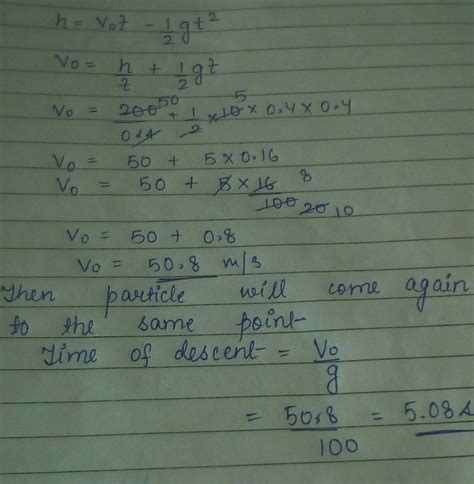 h = v₀t - 1/2 gt²
v₀ = h/t + 1/2 gt
v₀ = 200 50/0.4 + 1/2 × 10 5 × 0.4 × 0.4
v₀ = 50 + 5 × 0.16
v₀ = 50 + 5 × 16 8/100 20 10
v₀ = 50 + 0.8
v₀ = 50.8 m/s
Then particle will come again
to the same point
Time of descent = v₀/g
= 50.8/100 = 5.08s